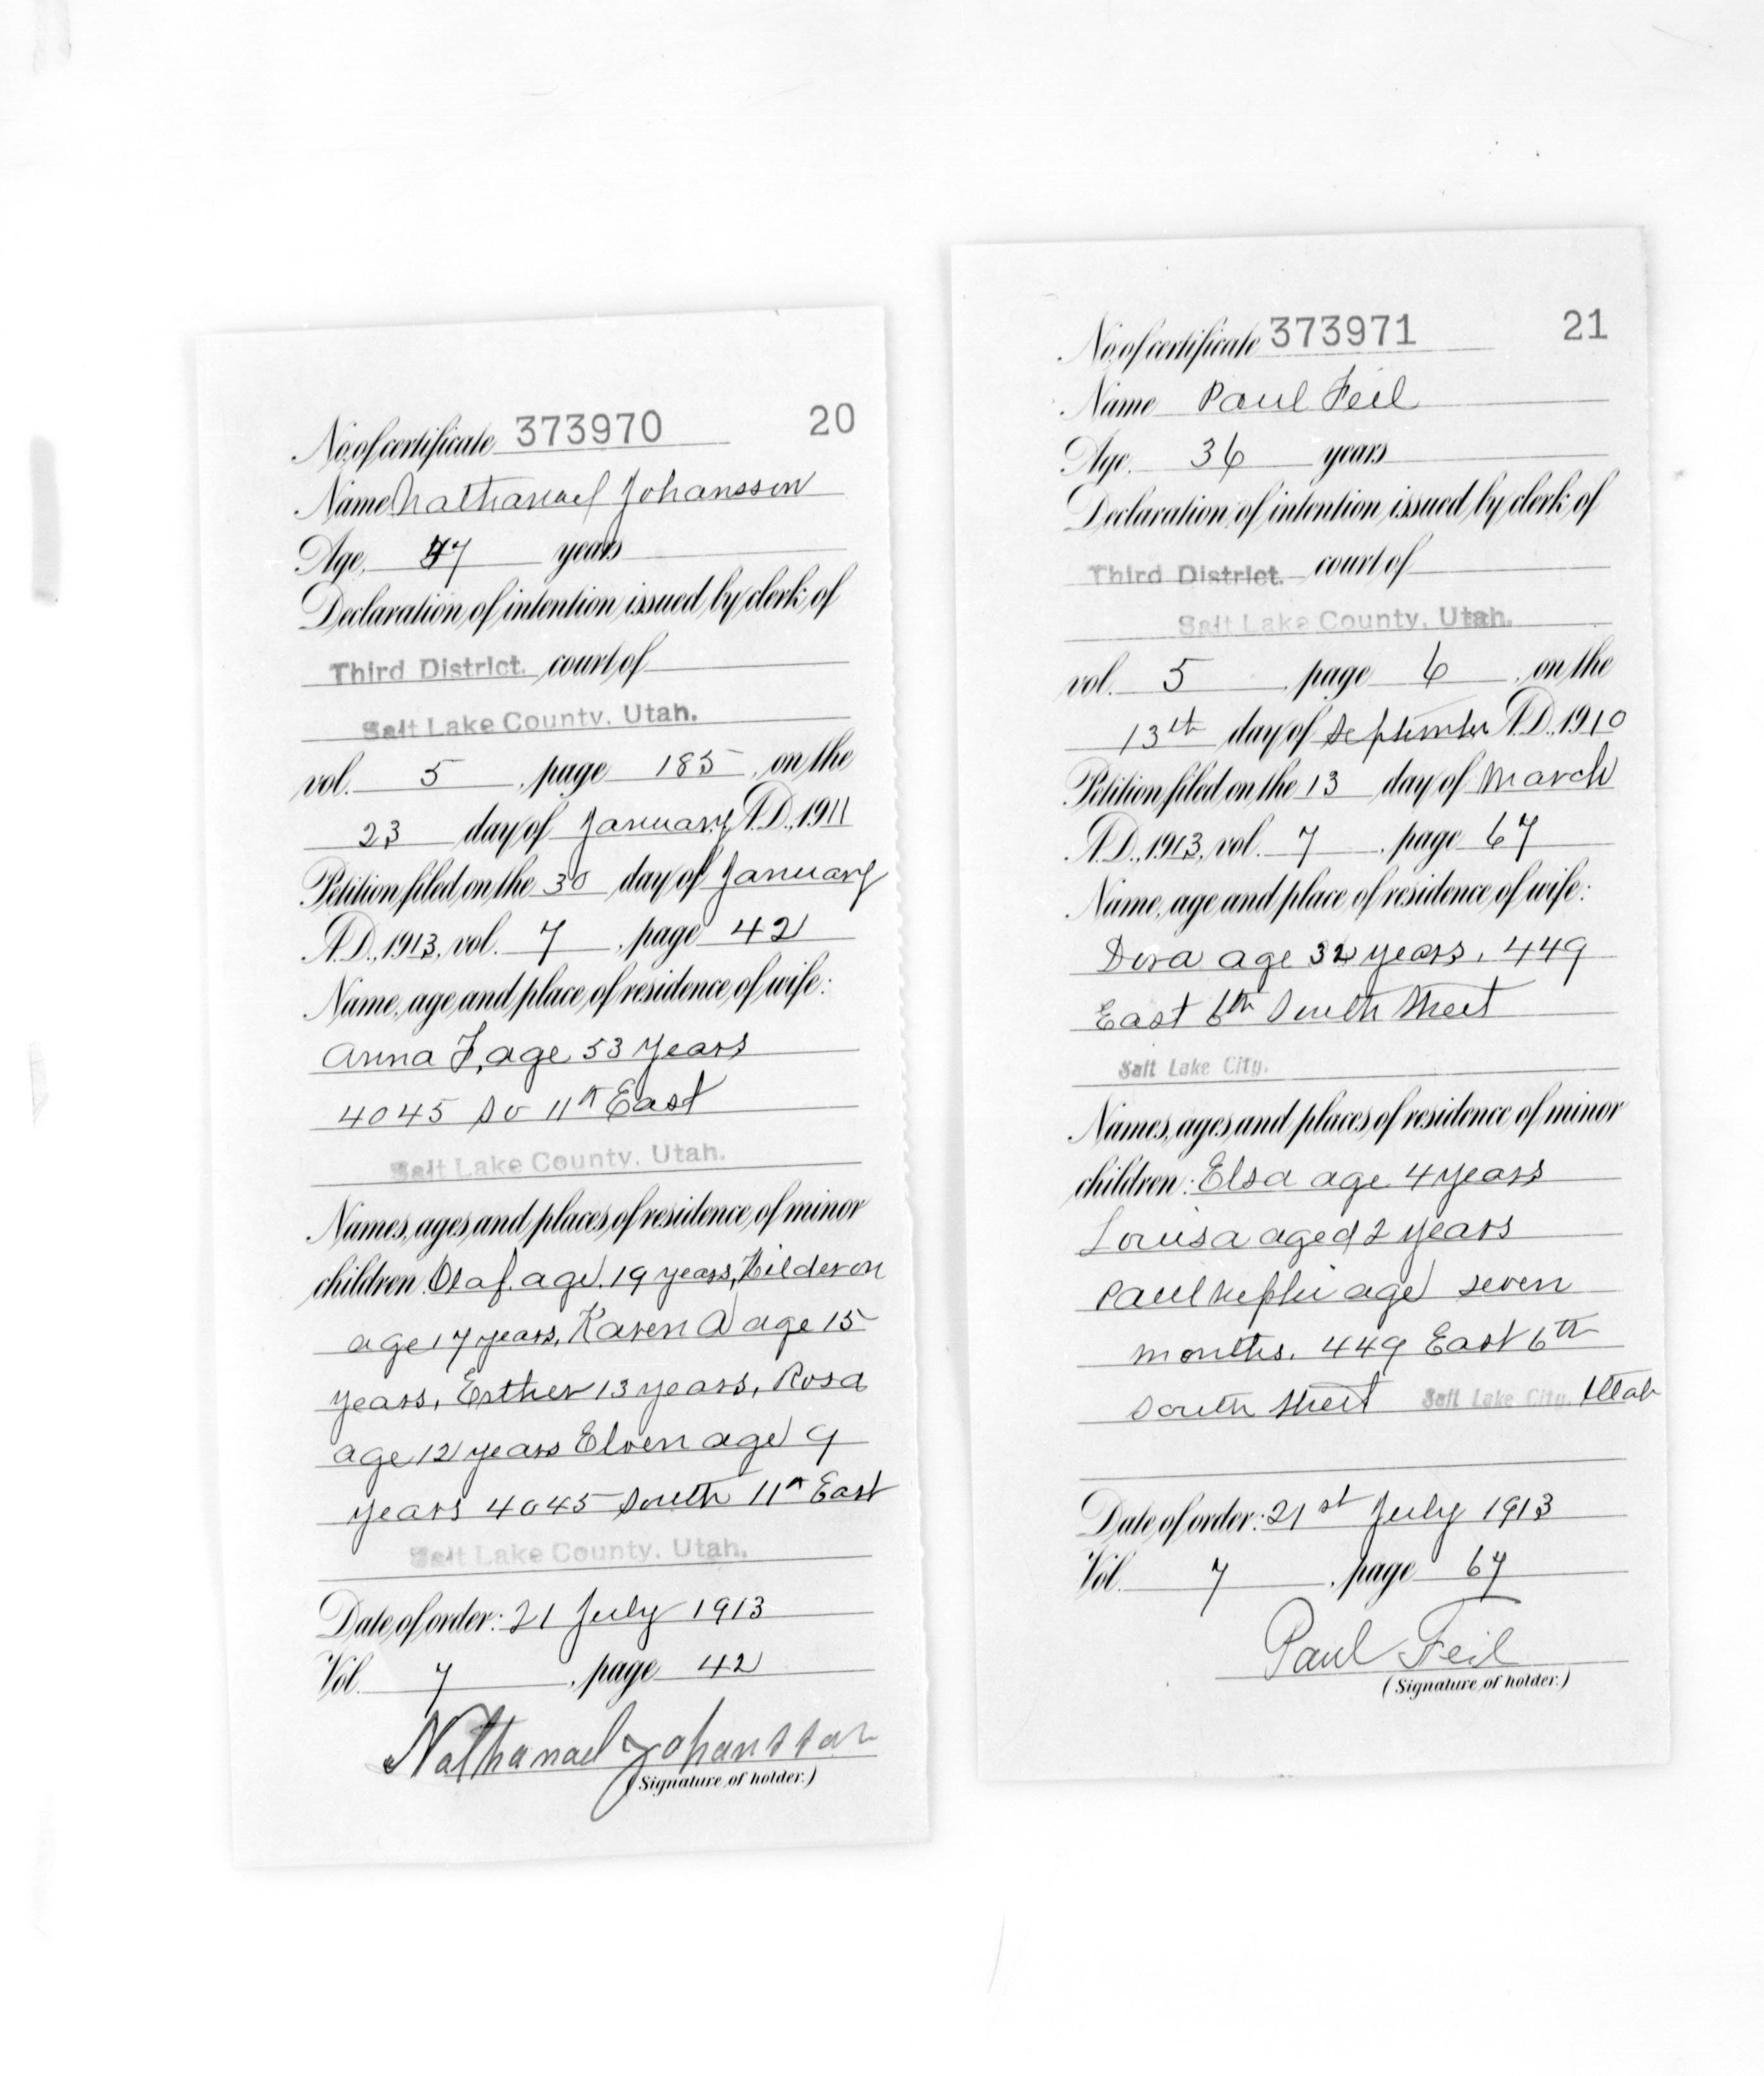 No. of certificate 373970 20
Name Nathanael Johansson
Age, 47 years
Declaration of intention issued by clerk of
Third District. court of
Salt Lake County, Utah.
vol. 5, page 185, on the
23 day of January, A.D., 1911
Petition filed on the 30 day of January
A.D., 1913, vol. 7, page 42
Name, age and place of residence of wife:
Anna F, age 53 years
4045 So 11th East
Salt Lake County, Utah.
Names, ages and places of residence of minor
children: Olaf. age. 19 years,
age 17 years, Karen A age 15
years, Esther 13 years, Rosa
age 12 years Elven age 9
years 4045 South 11th East
Salt Lake County, Utah.
Date of order: 21 July 1913
Vol. 7, page 42
Nathanael Johansson
(Signature of holder.)
No. of certificate 373971 21
Name Paul Feil
Age, 36 years
Declaration of intention issued by clerk of
Third District. court of
Salt Lake County, Utah.
vol. 5, page 6, on the
13th day of September A.D., 1910
Petition filed on the 13 day of March
A.D., 1913, vol. 7, page 67
Name, age and place of residence of wife:
Dora age 32 years, 449
East 6th South Street
Salt Lake City.
Names, ages and places of residence of minor
children: Elsa age 4 years
Louisa aged 2 years
Paul Nephi age seven
months. 449 East 6th
South Street Salt Lake City, Utah
Date of order: 21st July 1913
Vol. 7, page 67
Paul Feil
(Signature of holder.)